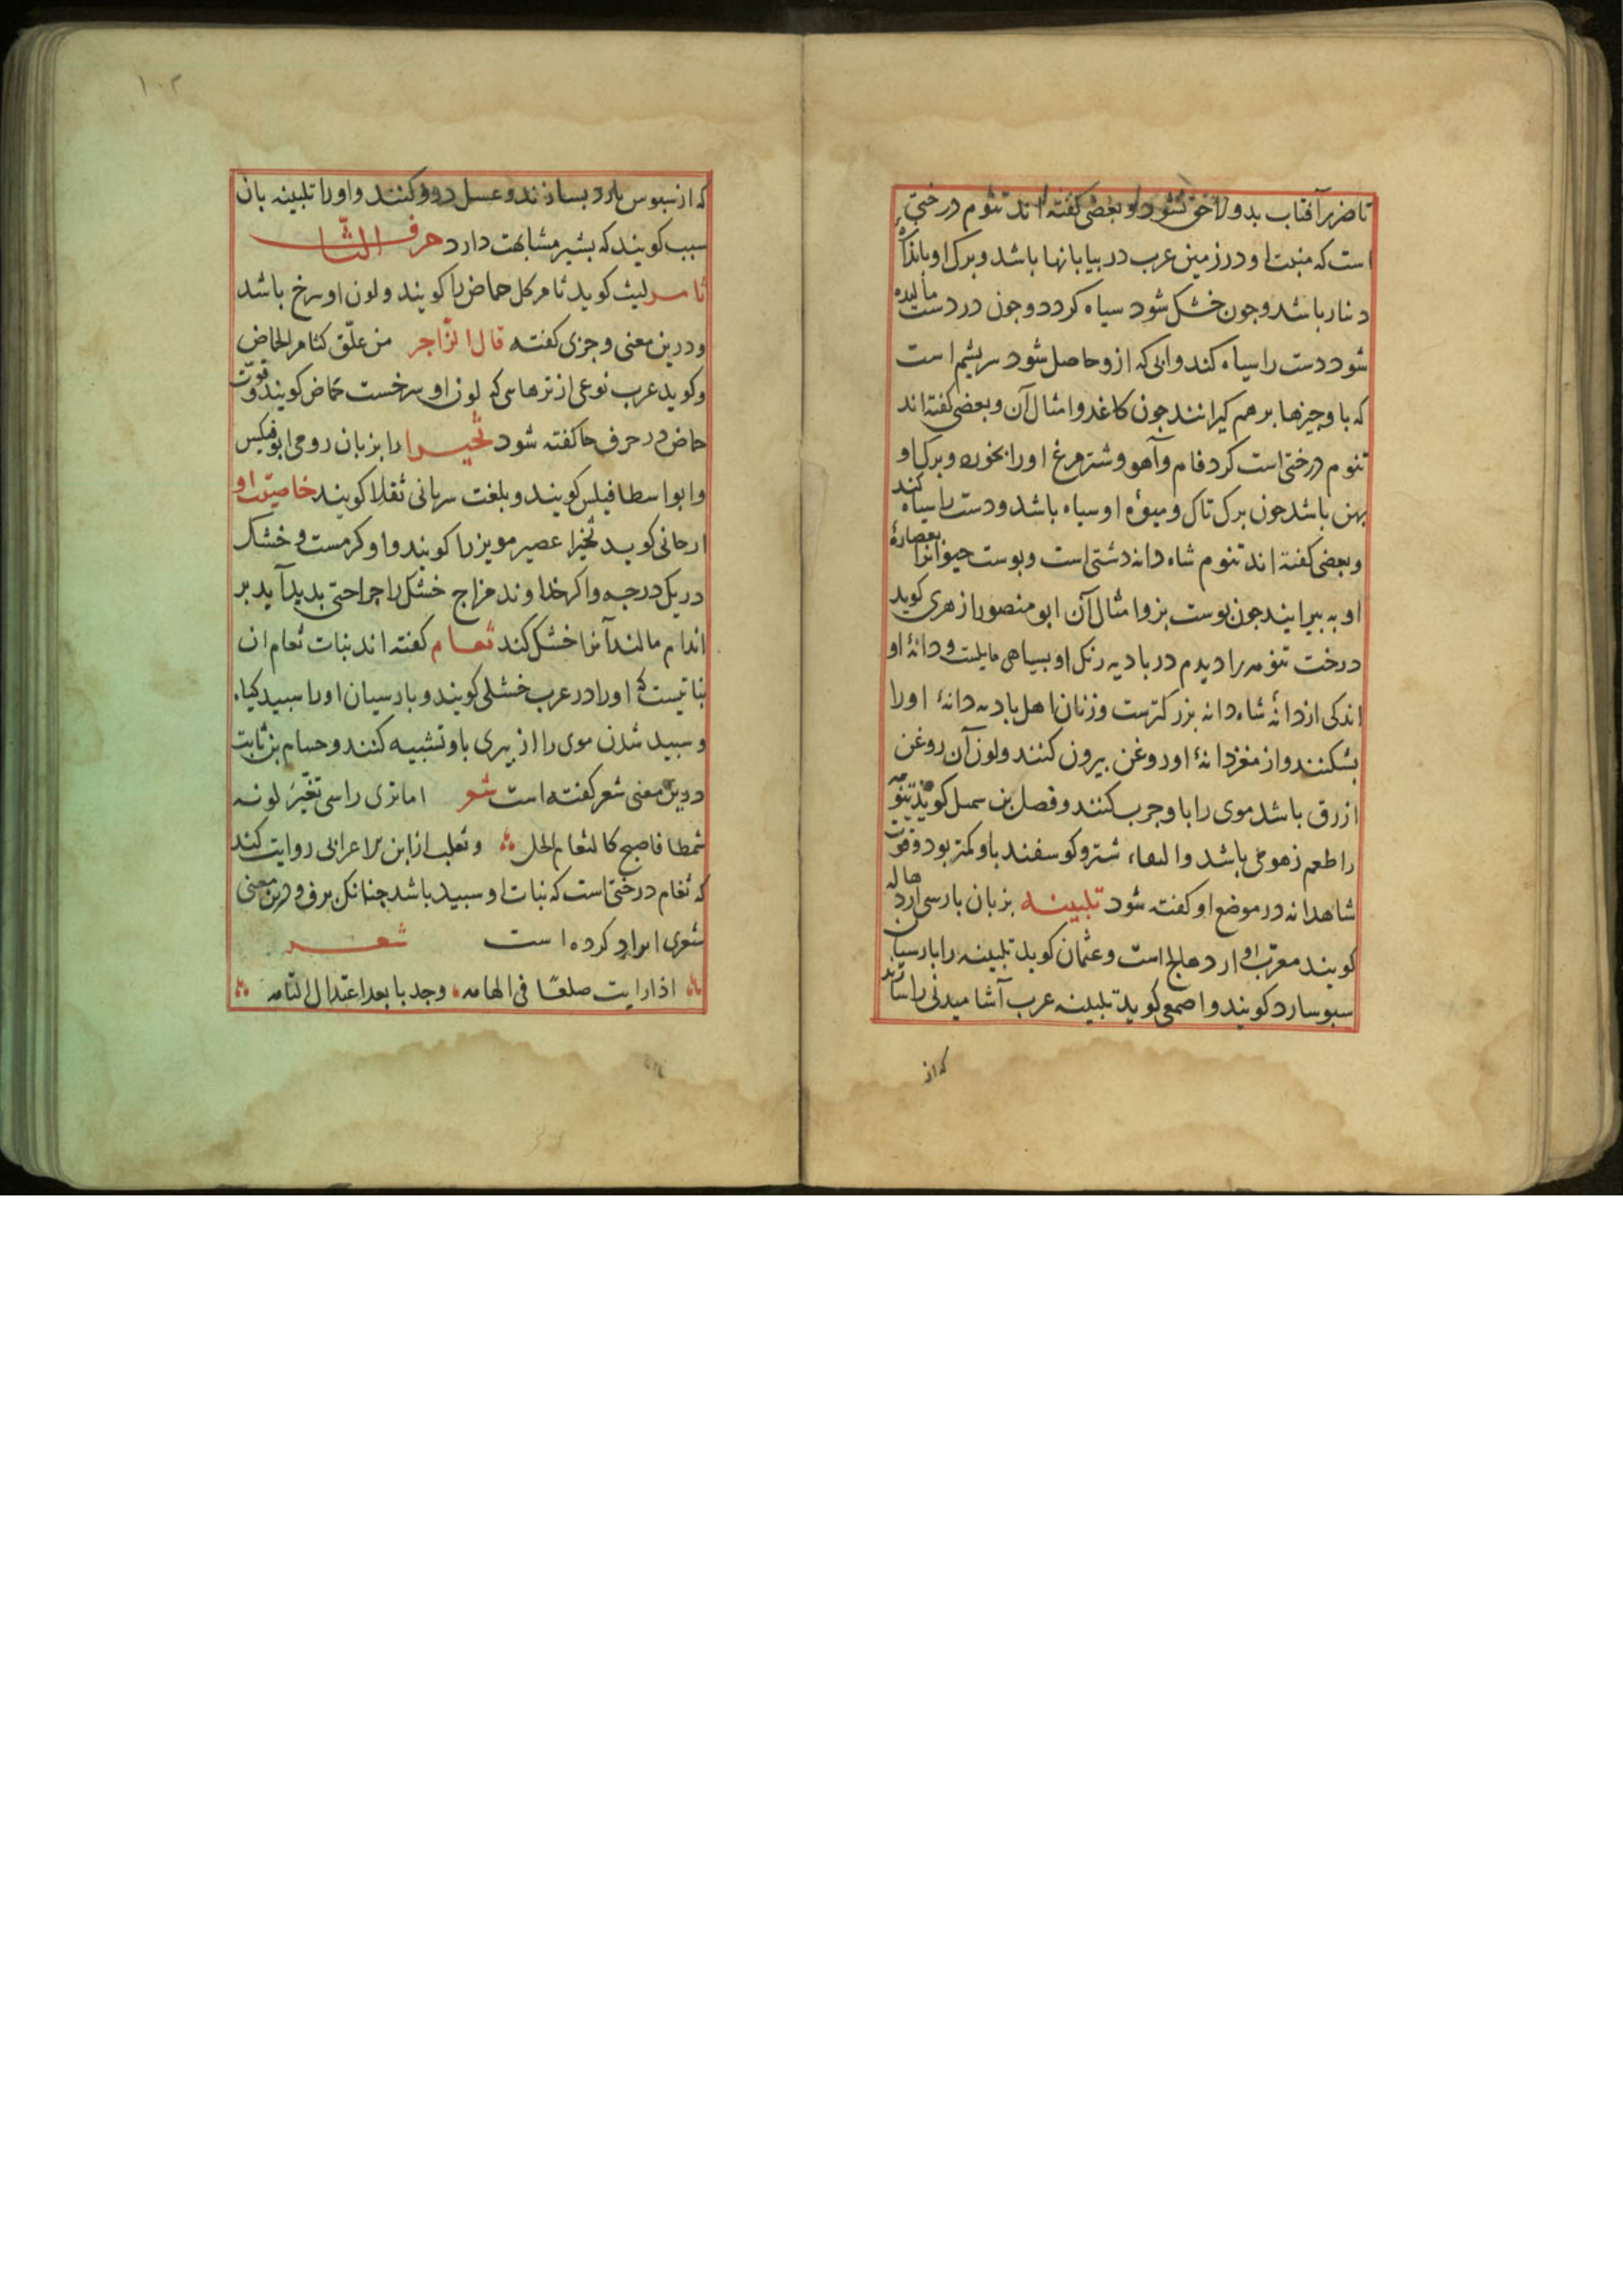 تا ضرر آفتاب بدو لاحق نشود و بعضی کفته اند تنوم درختی
است که منبت او در زمین عرب در بیابانها باشد و برک او باندازه
دینار باشد و جون خشک شود سیاه کردد و جون در دست مالیده
شود دست را سیاه کند و ابی که ازو حاصل شود سریشم است
که باو جیزها برهم کیرانند جون کاغد و امثال آن و بعضی کفته اند
تنوم درختی است کرد فام و آهو و شترمرغ او را بخورد و برک او
بهن باشد جون برک تاک و میوۀ او سیاه باشد و دست را سیاه کند
و بعضی کفته اند تنوم شاه دانه دشتی است و بوست حیوانرا بعصارۀ
او به بیرایند جون بوست بز و امثال آن ابو منصور ازهری کوید
درخت تنومه را دیدم در بادیه رنک او بسیاهی مایلست و دانۀ او
اندکی از دانۀ شاه دانه بزرکترست و زنان اهل بادیه دانۀ او را
بشکنند و از مغز دانۀ او روغن بیرون کنند و لون آن روغن
ازرق باشد موی را باو جرب کنند و فصل بن سمیل کوید تنومه
را طعم زهومی باشد و شتر و کوسفند باو کمتر بود و قوت
شاهدانه در موضع او کفته شود تلبینه بزبان بارسی ارد هاله
کویند معرب او ارد هالج است و عثمان کوید تلبینه را بارسیان
سبوسارد کویند و اصمعی کوید تلبینه عرب آشامیدنی را
که از
۱۰۲
که از سبوس بارد بسازند و عسل درو کنند و او را تلبینه بان
سبب کویند که بشیر مشابهت دارد حرف الثا
ثامر لیث کوید ثامر کل حماض را کویند و لون او سرخ باشد
و درین معنی وجزی کفته قال الزاجر من علّق کثامر الحماض
و کوید عرب نوعی از ترهاسی که لون او سرخست حماض کویند و قوّت
حماض در حرف حا کفته شود ثجیرا را بزبان رومی ابوفیکس
و ابواسطافیلس کویند و بلغت سریانی ثقلا کویند خاصیت او
ارجانی کوید ثجیرا عصیر مویز را کویند و او کرمست و خشک
در یک درجه و اکر خداوند مزاج خشک را جراحتی بدید آید بر
اندام مالند آنرا خشک کند ثغام کفته اند نبات ثغام ان
نباتیست که او را در عرب خشلی کویند و بارسیان او را سبید کیاه
و سبید شدن موی را از بیری باو تشبیه کنند و حسام بن ثابت
درین معنی شعر کفته است شعر اما تری راسی تغیّر لونه
شمطا فاصبح کالثغام المحل و ثعلب از ابن الاعرابی روایت کند
که ثغام درختی است که نبات او سبید باشد جنانک برف و درین معنی
شعری ایراد کرده است شعر
اذا رایت صلعا فی الهامه وجدبا بعد اعتدال القامه